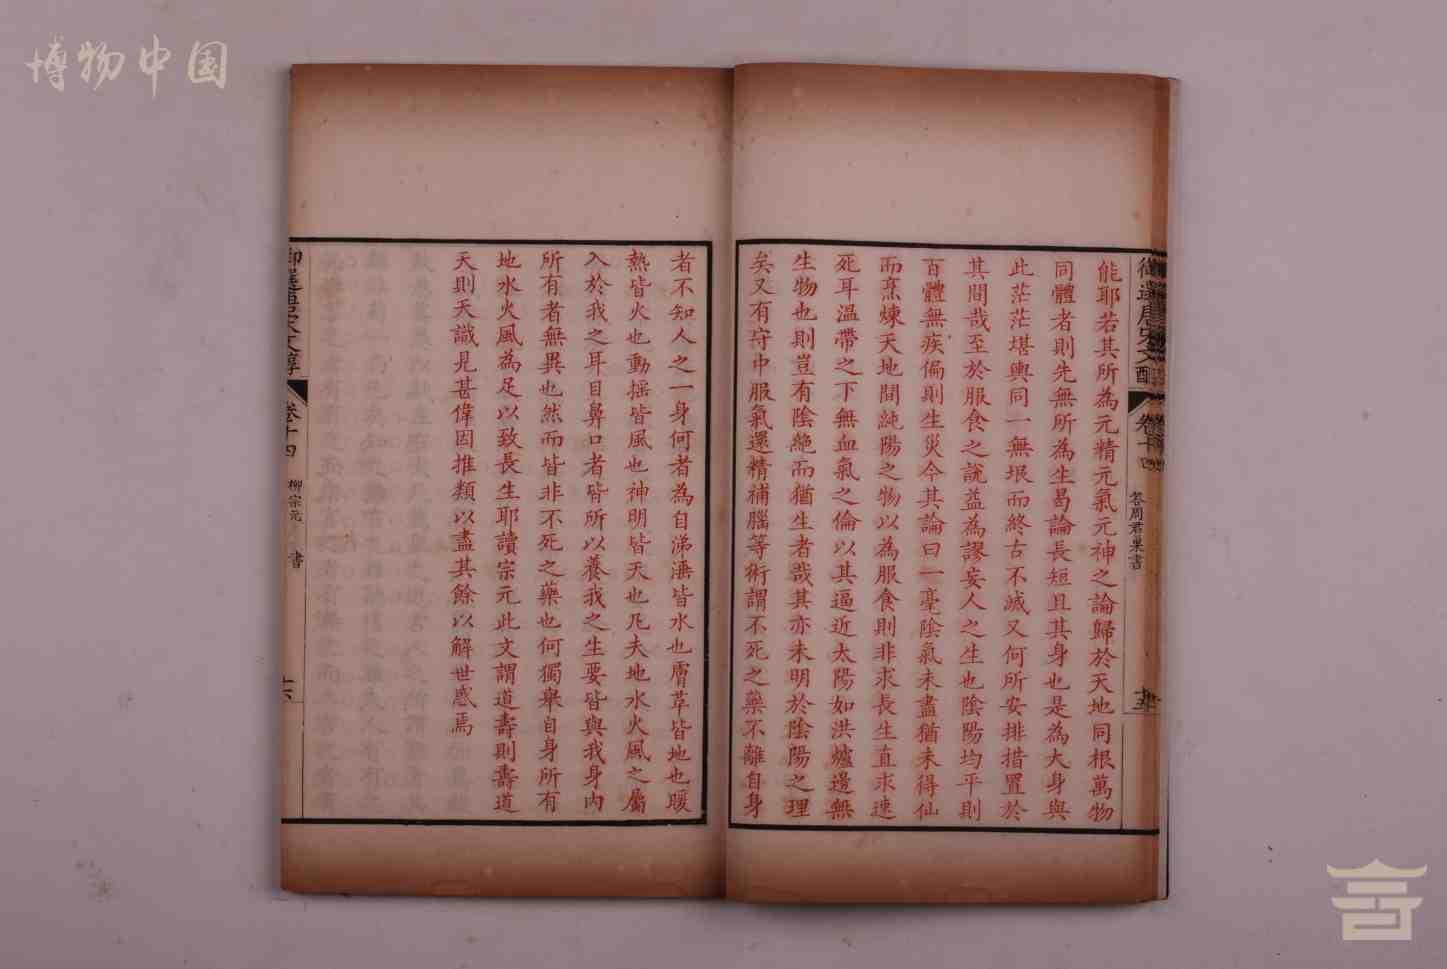 博物中国
能耶若其所為元精元氣元神之論歸於天地同根萬物
同體者則先無所為生曷論長短且其身也是為大身與
此茫茫堪輿同一無垠而終古不滅又何所安排措置於
其間哉至於服食之説益為謬妄人之生也陰陽均平則
百體無疾偏則生災今其論曰一毫陰氣未盡猶未得仙
而烹煉天地間純陽之物以為服食則非求長生直求速
死耳温帶之下無血氣之倫以其逼近太陽如洪爐邊無
生物也則豈有陰絶而猶生者哉其亦未明於陰陽之理
矣又有守中服氣還精補腦等術謂不死之藥不離自身
者不知人之一身何者為自涕湩皆水也膚革皆地也暖
熱皆火也動揺皆風也神明皆天也凡夫地水火風之屬
入於我之耳目鼻口者皆所以養我之生要皆與我身内
所有者無異也然而皆非不死之藥也何獨舉自身所有
地水火風為足以致長生耶讀宗元此文謂道壽則壽道
天則天識見甚偉因推類以盡其餘以解世惑焉
御選唐宋文醇
卷十四
答周君巢書
御選唐宋文醇
卷十四
柳宗元 書
十六